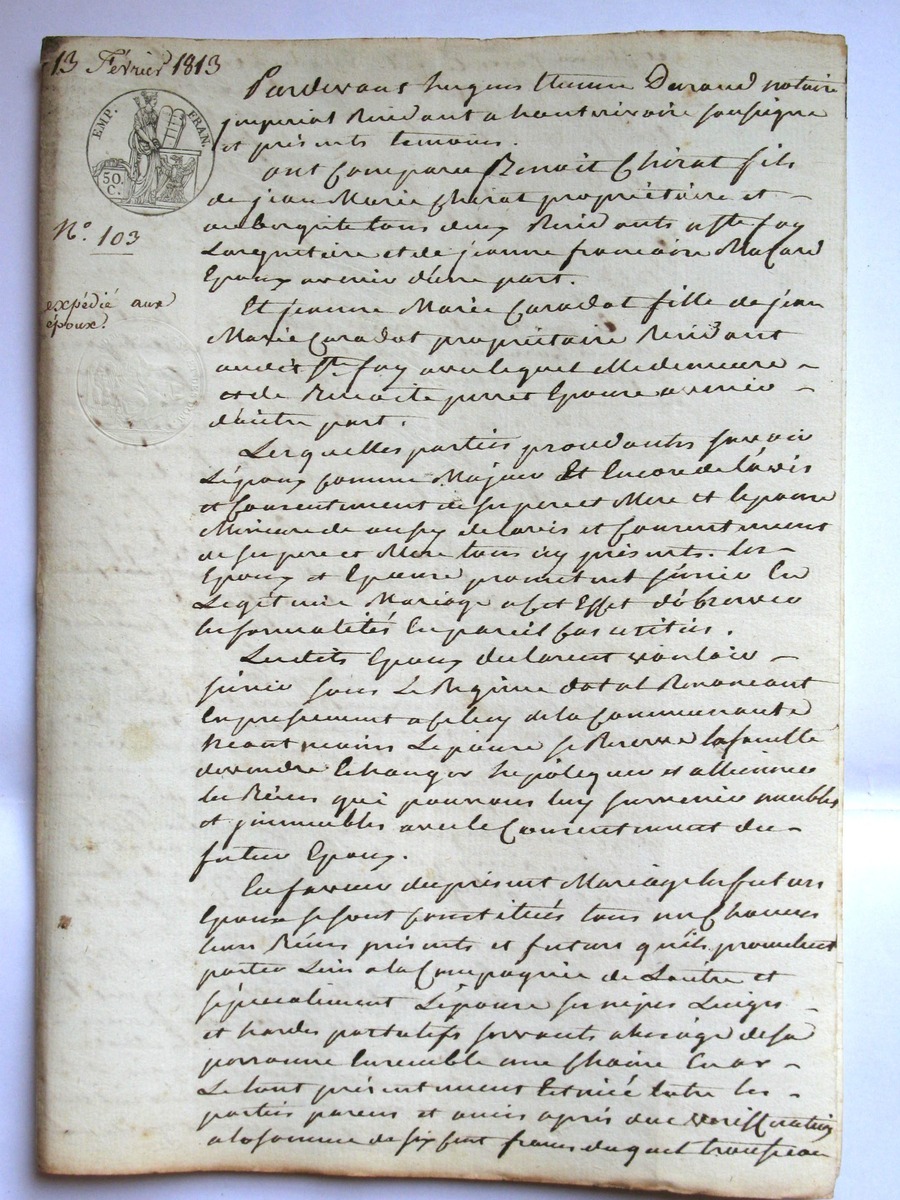 13 Février 1813
EMP. FRAN.
50 C.
N.o 103
expédié aux
époux.
Pardevant hugues Etienne Durand notaire
jmperial Residant a hauterivoire soussigné
et présents temoins.
ont Comparu Benoit Chirat fils
de jean Marie Chirat propriétaire et
aubergiste tous deux Residants a Ste foy
Largentiere et de jeanne francoise
Epoux avenir d'une part.
Et jeanne Marie Caradot fille de jean
Marie Caradot propriétaire Residant
audit Ste foy avec lequel elle demeure
et de Benoite Epouse avenir
d'autre part.
Lesquelles parties procedantes savoir
L'époux Comme Majeur Et Encore de l'avis
et Consentement de ses pere et Mere et lepouse
Mineure de aussy de lavis et Consentement
de ses pere et Mere tous icy présents. les
Epoux et Epouse promettent s'unir En
Legitime Mariage a Cet Effet d'observer
les formalités En pareil Cas usitées.
Lesdits Epoux declarent vouloir
s'unir sous Le Regime dotal Renoncant
Expressement a Celuy de la Communauté
Neantmoins Lepouse se Reserve la faculté
de vendre Echanger hepotequer et alliener
les Biens qui pourront luy survenir meubles
et jmmeubles avec le Consentement du
futur Epoux.
En faveur du présent Mariage les futurs
Epoux se sont Constitués tous un Chacun
leurs Biens présents et futurs qu'ils promettent
porter L'un a la Compagnie de Lautre et
spécialement Lépouse ses nipes Linges
et hardes portatifs servants a lusage de sa
personne Ensemble une Chaine En or
Le tout présentement Estimé Entre les
parties parens et amis après due verification
a la somme de six cent francs duquel trousseau